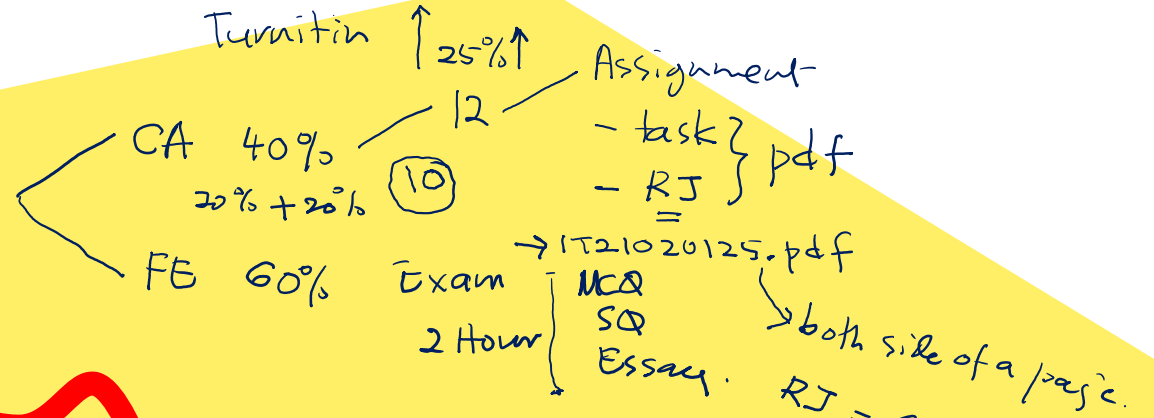 Turnitin 25%
12 Assignment
CA 40% - task
20% + 20% 10 - RJ } pdf
→ IT21020125.pdf
FE 60% Exam MCQ
2 Hour SQ
Essay. both side of a page.
RJ